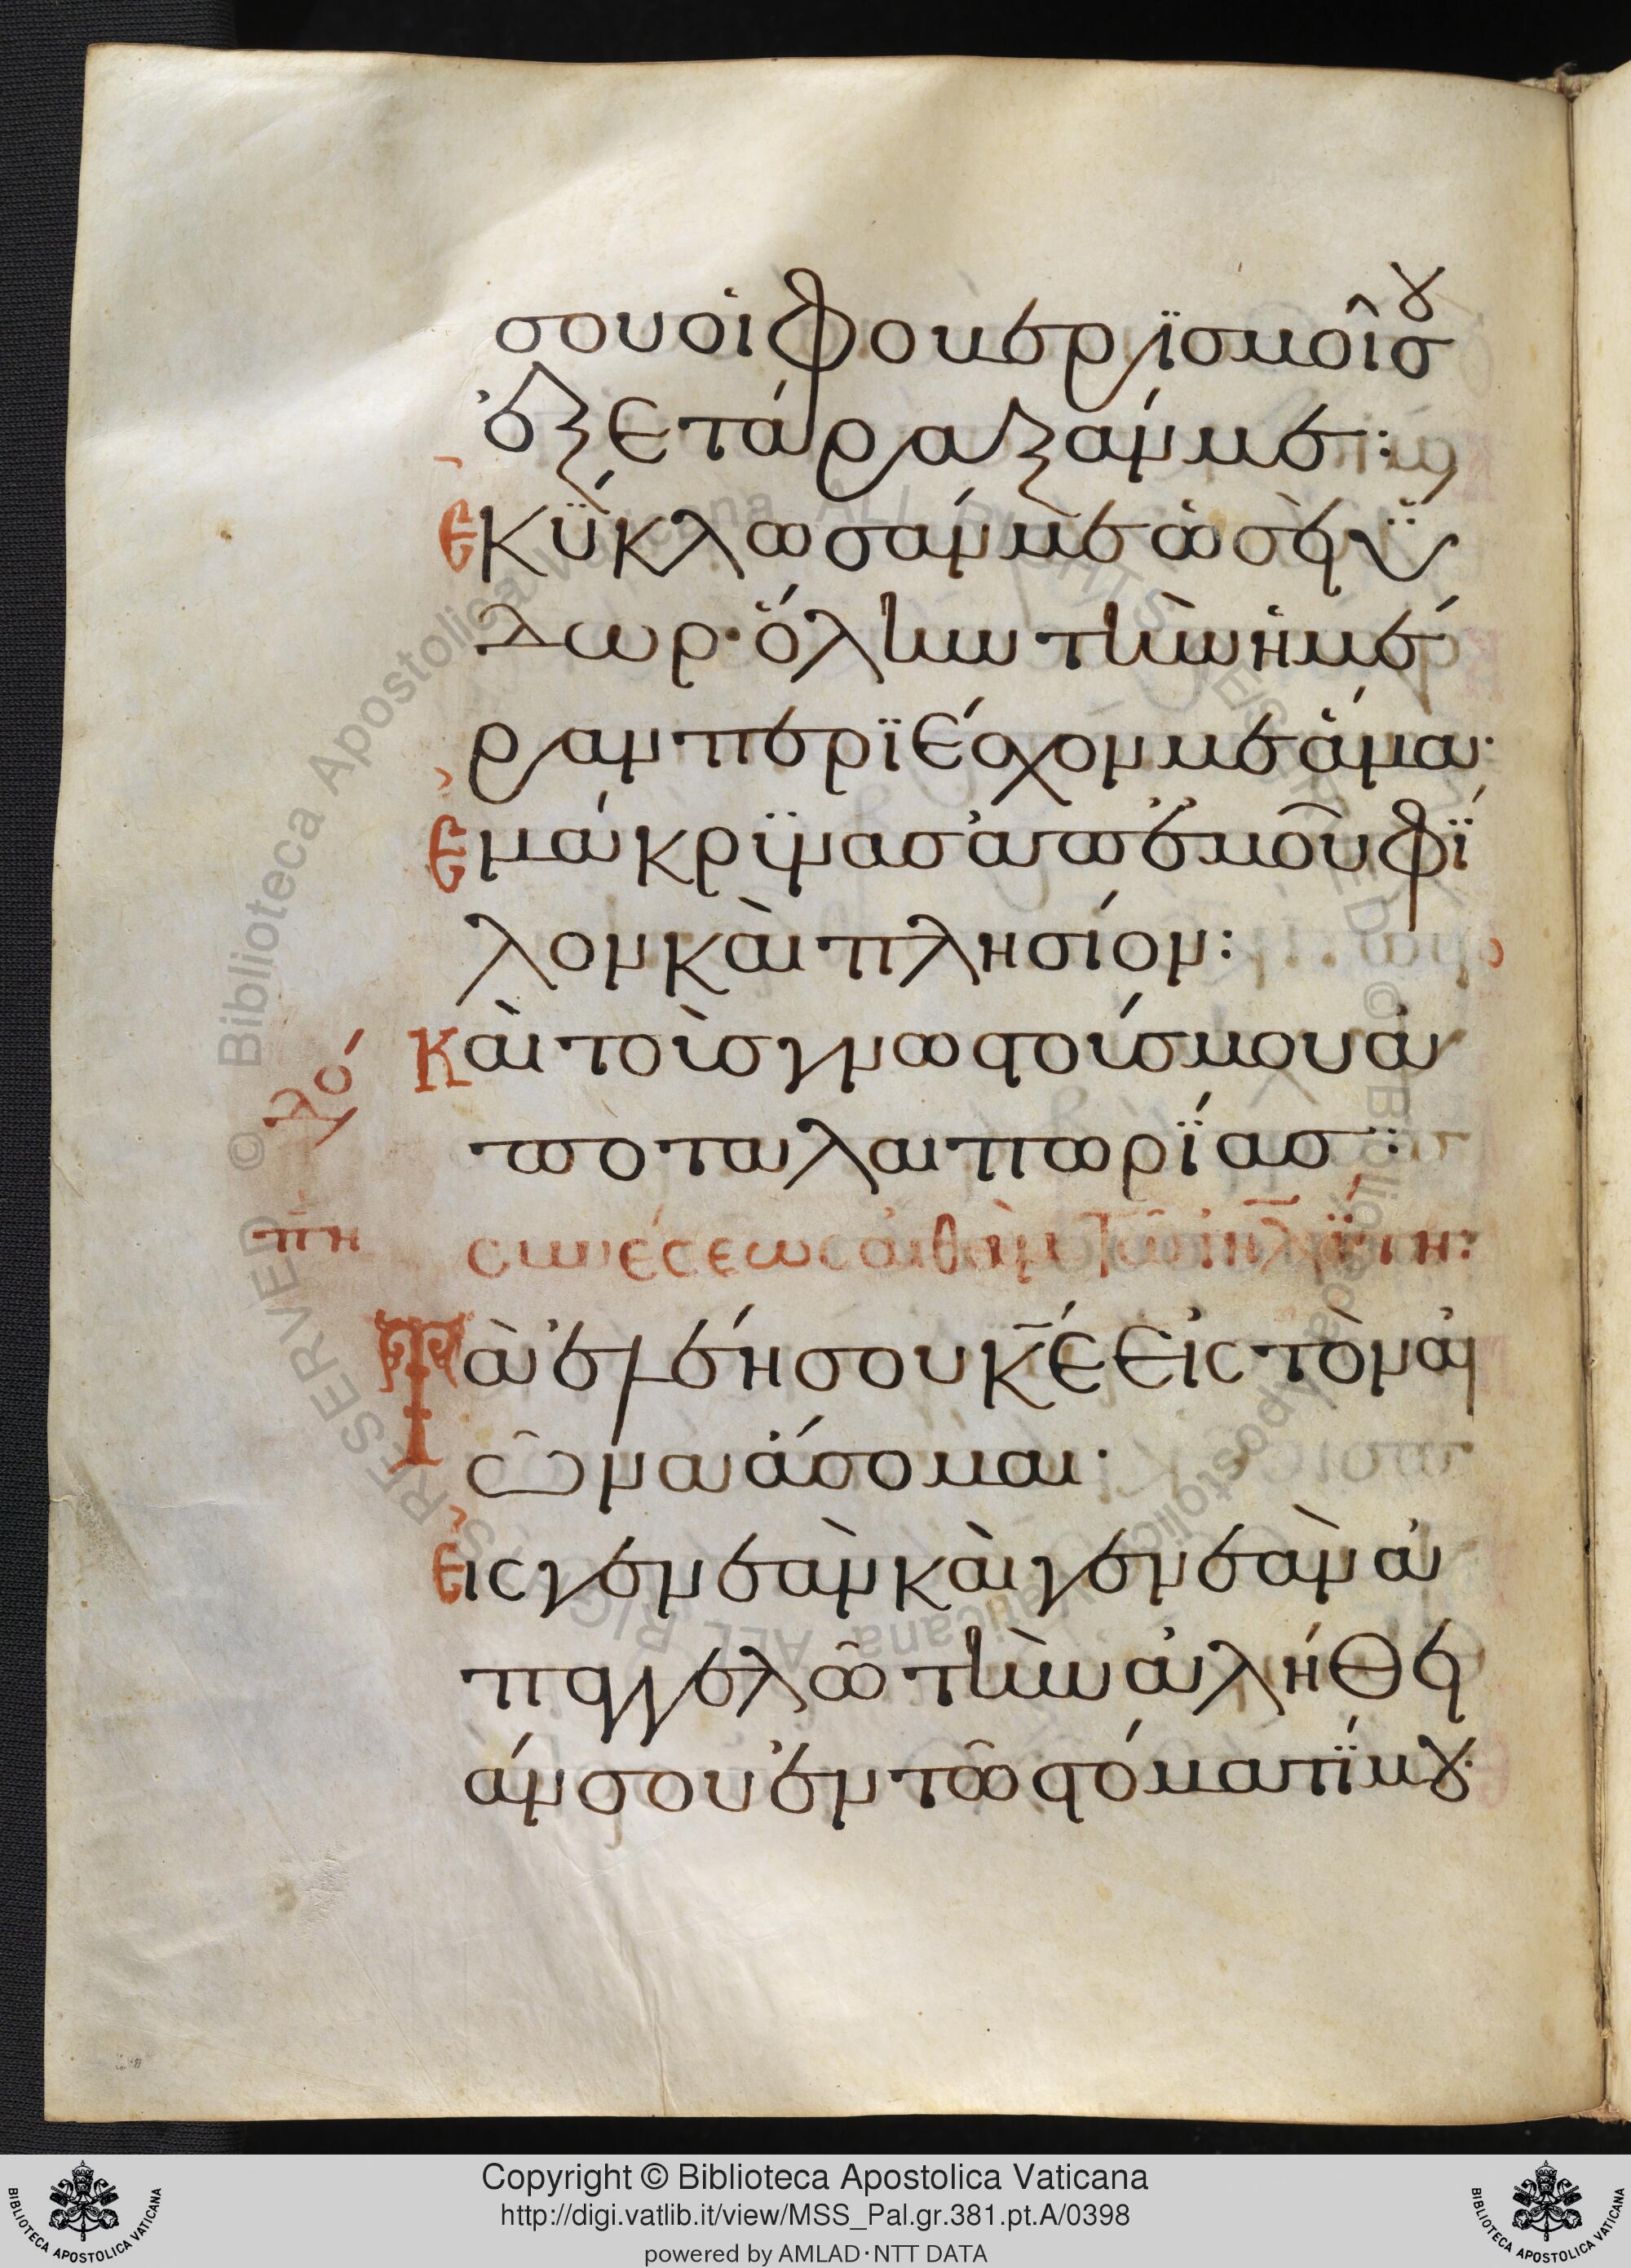 σου οἱ φοβερϊσμοῖ σου
ἐξετάραξάν με:
Εκΰκλωσάν μὲ ὡσεὶ ΰ
δωρ· ὅλην τὴν ἡμέ
ραν περϊέσχον με ἅμα·
Εμάκρϋνας ἀπ' ἐμοῦ φΐ
λον καὶ πλησίον:
Καὶ τοὺς γνωστούς μου ἀ
πο ταλαιπωρΐας:
δό
πη
συνέσεως αιθὰμ τῶ ἰηλΐτη:
Τὰ ἐλέη σου κ̅έ εἰς τὸν αἰ
ῶνα ἄσομαι·
Εἰς γενεὰν καὶ γενεὰν ἀ
παγγελῶ τὴν ἀλήθει
άν σου ἐν τῶ στόματΐ μου·
Copyright © Biblioteca Apostolica Vaticana
http://digi.vatlib.it/view/MSS_Pal.gr.381.pt.A/0398
powered by AMLAD·NTT DATA
BIBLIOTECA APOSTOLICA VATICANA
BIBLIOTECA APOSTOLICA VATICANA